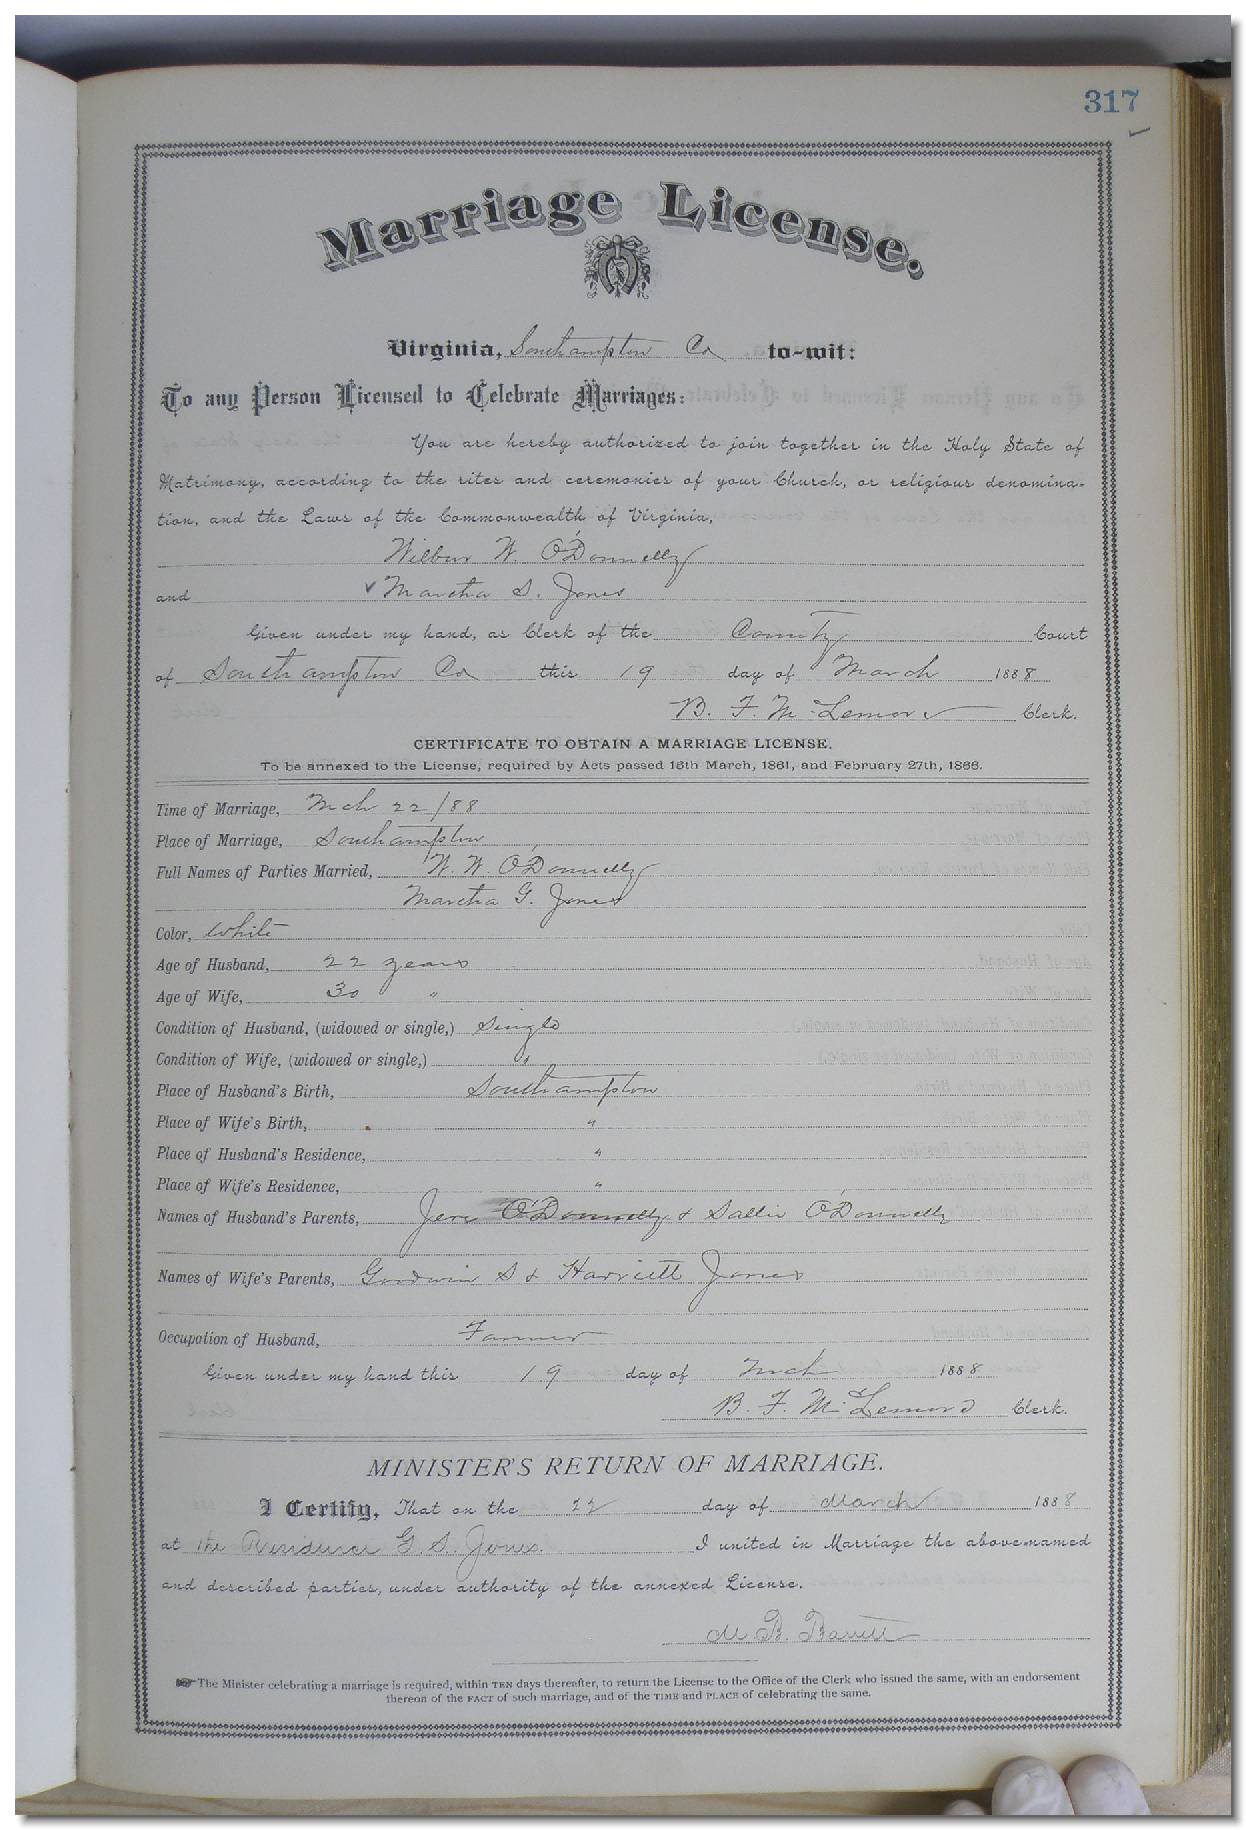 317
Marriage License.
Virginia, Southampton Co to-wit:
To any Person Licensed to Celebrate Marriages:
You are hereby authorized to join together in the Holy State of
Matrimony, according to the rites and ceremonies of your Church, or religious denomina-
tion, and the Laws of the Commonwealth of Virginia,
Wilbur W. O'Donnelly
and Martha S. Jones
Given under my hand, as Clerk of the County Court
of Southampton Co this 19 day of March 1888
B. F. McLemore Clerk.
CERTIFICATE TO OBTAIN A MARRIAGE LICENSE.
To be annexed to the License, required by Acts passed 16th March, 1861, and February 27th, 1866.
Time of Marriage, Mch 22/88
Place of Marriage, Southampton
Full Names of Parties Married, W. W. O'Donnelly
Martha G. Jones
Color, White
Age of Husband, 22 years
Age of Wife, 30 "
Condition of Husband, (widowed or single,) Single
Condition of Wife, (widowed or single,) "
Place of Husband's Birth, Southampton
Place of Wife's Birth, "
Place of Husband's Residence, "
Place of Wife's Residence, "
Names of Husband's Parents, Jere O'Donnelly & Sallie O'Donnelly
Names of Wife's Parents, Goodwin S & Harriett Jones
Occupation of Husband, Farmer
Given under my hand this 19 day of Mch 1888
B. F. McLemore Clerk.
MINISTER'S RETURN OF MARRIAGE.
I Certify, That on the 22 day of March 1888
at the Residence G. S. Jones. I united in Marriage the above-named
and described parties, under authority of the annexed License.
B. Barrett
The Minister celebrating a marriage is required, within TEN days thereafter, to return the License to the Office of the Clerk who issued the same, with an endorsement
thereon of the FACT of such marriage, and of the TIME and PLACE of celebrating the same.